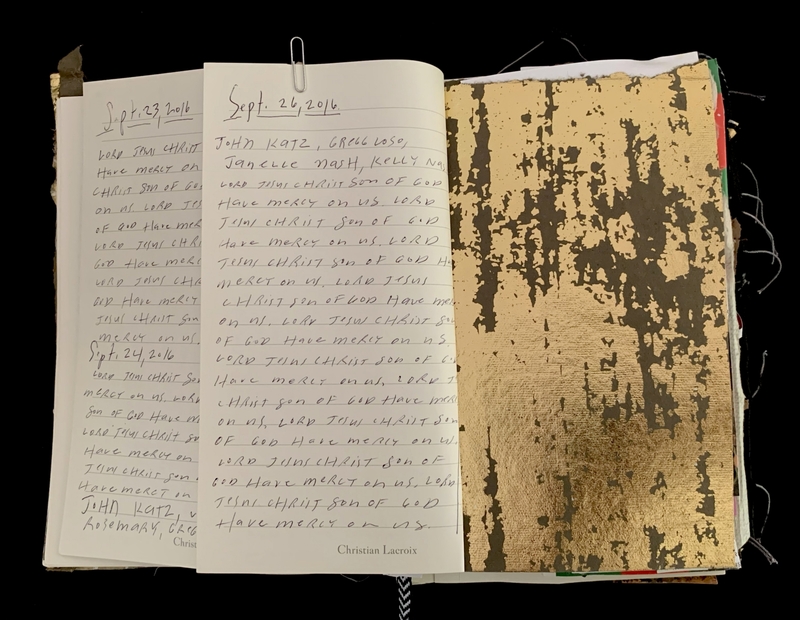 Sept. 23, 2016
LORD JESUS CHRIST
Have mercy on
CHRIST Son OF GOD
on us LORD JES
OF GOD Have merc
LORD JESUS CHRI
GOD Have merc
LORD JESUS CHRI
GOD Have mercy
JESUS CHRIST Son
mercy on us.
Sept. 24, 2016
LORD JESUS CHRIST Son
mercy on us LORD
Son OF GOD Have
LORD JESUS CHRIST
Have mercy on
JESUS CHRIST Son
Have mercy on
JOHN KATZ,
Rosemary, GREG
Christ
Sept. 26, 2016
JOHN KATZ, GREGG LOSO,
JANELLE NASH, KELLY NA
LORD JESUS CHRIST Son OF GOD
Have mercy on us. LORD
JESUS CHRIST Son OF GOD
Have mercy on us. LORD
JESUS CHRIST Son OF GOD Ha
mercy on us, LORD JESUS
CHRIST Son OF GOD Have mer
on us, LORD JESUS CHRIST Son
OF GOD Have mercy on us
LORD JESUS CHRIST Son OF G
Have mercy on us, LORD J
CHRIST Son OF GOD Have mer
on us, LORD JESUS CHRIST Son
OF GOD Have mercy on us.
LORD JESUS CHRIST Son OF
GOD Have mercy on us, LORD
JESUS CHRIST Son OF GOD
Have mercy on us.
Christian Lacroix